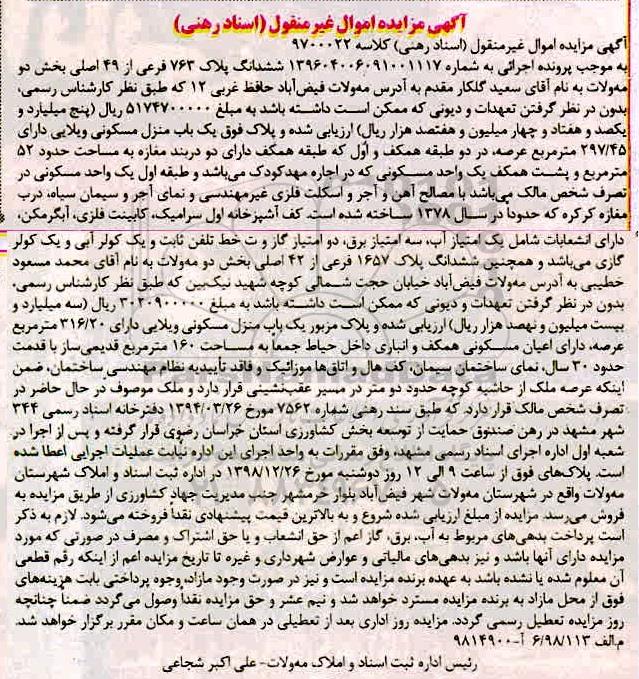 آگهی مزایده اموال غیرمنقول (اسناد رهنی)
آگهی مزایده اموال غیرمنقول (اسناد رهنی) کلاسه ۹۷۰۰۰۲۲
به موجب پرونده اجرائی به شماره ۱۳۹۶۰۴۰۰۶۰۹۱۰۰۱۱۱۷ ششدانگ پلاک ۷۶۳ فرعی از ۴۹ اصلی بخش دو
مه‌ولات به نام آقای سعید گلکار مقدم به آدرس مه‌ولات فیض‌آباد حافظ غربی ۱۲ که طبق نظر کارشناس رسمی،
بدون در نظر گرفتن تعهدات و دیونی که ممکن است داشته باشد به مبلغ ۵۱۷۴۷۰۰۰۰۰ ریال (پنج میلیارد و
یکصد و هفتاد و چهار میلیون و هفتصد هزار ریال) ارزیابی شده و پلاک فوق یک باب منزل مسکونی ویلایی دارای
۲۹۷/۴۵ مترمربع عرصه، در دو طبقه همکف و اول که طبقه همکف دارای دو دربند مغازه به مساحت حدود ۵۲
مترمربع و پشت همکف یک واحد مسکونی که در اجاره مهدکودک می‌باشد و طبقه اول یک واحد مسکونی در
تصرف شخص مالک می‌باشد با مصالح آهن و آجر و اسکلت فلزی غیرمهندسی و نمای آجر و سیمان سیاه، درب
مغازه کرکره که حدوداً در سال ۱۳۷۸ ساخته شده است. کف آشپزخانه اول سرامیک، کابینت فلزی، آبگرمکن،
دارای انشعابات شامل یک امتیاز آب، سه امتیاز برق، دو امتیاز گاز و ت خط تلفن ثابت و یک کولر آبی و یک کولر
گازی می‌باشد و همچنین ششدانگ پلاک ۱۶۵۷ فرعی از ۴۲ اصلی بخش دو مه‌ولات به نام آقای محمد مسعود
خطیبی به آدرس مه‌ولات فیض‌آباد خیابان حجت شمالی کوچه شهید نیک‌بین که طبق نظر کارشناس رسمی،
بدون در نظر گرفتن تعهدات و دیونی که ممکن است داشته باشد به مبلغ ۳۰۲۰۹۰۰۰۰۰ ریال (سه میلیارد و
بیست میلیون و نهصد هزار ریال) ارزیابی شده و پلاک مزبور یک باب منزل مسکونی ویلایی دارای ۳۱۶/۲۰ مترمربع
عرصه، دارای اعیان مسکونی همکف و انباری داخل حیاط جمعاً به مساحت ۱۶۰ مترمربع قدیمی‌ساز با قدمت
حدود ۳۰ سال، نمای ساختمان سیمان، کف هال و اتاق‌ها موزائیک و فاقد تأییدیه نظام مهندسی ساختمان، ضمن
اینکه عرصه ملک از حاشیه کوچه حدود دو متر در مسیر عقب‌نشینی قرار دارد و ملک موصوف در حال حاضر در
تصرف شخص مالک قرار دارد. که طبق سند رهنی شماره ۷۵۶۲ مورخ ۱۳۹۴/۰۳/۲۶ دفترخانه اسناد رسمی ۳۴۴
شهر مشهد در رهن صندوق حمایت از توسعه بخش کشاورزی استان خراسان رضوی قرار گرفته و پس از اجرا در
شعبه اول اداره اجرای اسناد رسمی مشهد، وفق مقررات به واحد اجرای این اداره نیابت عملیات اجرایی اعطا شده
است. پلاک‌های فوق از ساعت ۹ الی ۱۲ روز دوشنبه مورخ ۱۳۹۸/۱۲/۲۶ در اداره ثبت اسناد و املاک شهرستان
مه‌ولات واقع در شهرستان مه‌ولات شهر فیض‌آباد بلوار خرمشهر جنب مدیریت جهاد کشاورزی از طریق مزایده به
فروش می‌رسد. مزایده از مبلغ ارزیابی شده شروع و به بالاترین قیمت پیشنهادی نقداً فروخته می‌شود. لازم به ذکر
است پرداخت بدهی‌های مربوط به آب، برق، گاز اعم از حق انشعاب و یا حق اشتراک و مصرف در صورتی که مورد
مزایده دارای آنها باشد و نیز بدهی‌های مالیاتی و عوارض شهرداری و غیره تا تاریخ مزایده اعم از اینکه رقم قطعی
آن معلوم شده یا نشده باشد به عهده برنده مزایده است و نیز در صورت وجود مازاد، وجوه پرداختی بابت هزینه‌های
فوق از محل مازاد به برنده مزایده مسترد خواهد شد و نیم عشر و حق مزایده نقداً وصول می‌گردد ضمناً چنانچه
روز مزایده تعطیل رسمی گردد. مزایده روز اداری بعد از تعطیلی در همان ساعت و مکان مقرر برگزار خواهد شد.
م.الف ۶/۹۸/۱۱۳ آ-۹۸۱۴۹۰۰
رئیس اداره ثبت اسناد و املاک مه‌ولات- علی اکبر شجاعی